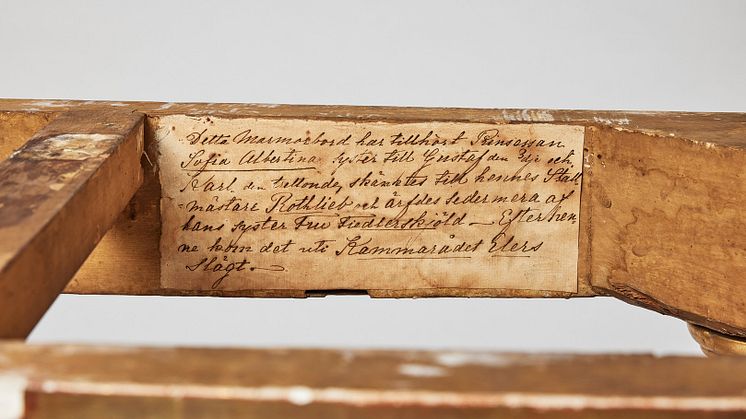 Detta Marmorbord har tillhört Prinsessan
Sofia Albertina syster till Gustaf den 3je och
Karl den trettonde, skänktes till hennes Stall
=mästare Rothlieb och ärfdes sedermera af
hans syster Fru Fiedlerskjöld — Efter hen
ne kom det uti Kammarådet Elers
Slägt. —